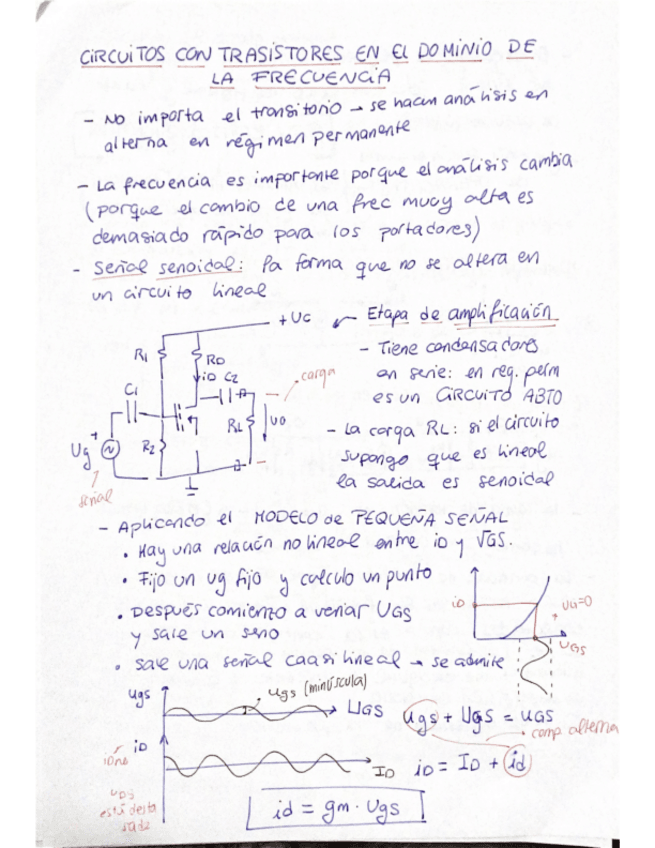 CIRCUITOS CON TRASISTORES EN EL DOMINIO DE
LA FRECUENCIA
- No importa el transitorio → se hacen análisis en
alterna en régimen permanente
- La frecuencia es importante porque el análisis cambia
(porque el cambio de una frec muoy alta es
demasiado rápido para los portadores)
- Señal senoidal: la forma que no se altera en
un circuito lineal
+ Uc
← Etapa de amplificación
R1
RD
iD
C2
carga
C1
R2
RL
uo
Ug
+
señal
- Tiene condensadores
en serie: en reg. perm
es un CIRCUITO ABTO
- La carga RL: si el circuito
supongo que es lineal
la salida es senoidal
- Aplicando el MODELO de PEQUEÑA SEÑAL
• Hay una relación no lineal entre iD y VGS.
• Fijo un ug fijo y calculo un punto
• Después comienzo a variar UGS
y sale un seno
• Sale una señal caasi lineal → se admite
iD
UGS
ugs
ugs (minúscula)
UGS
ugs + UGS = uGS
comp alterna
iD
ID
iD = ID + id
está desta
id = gm · ugs